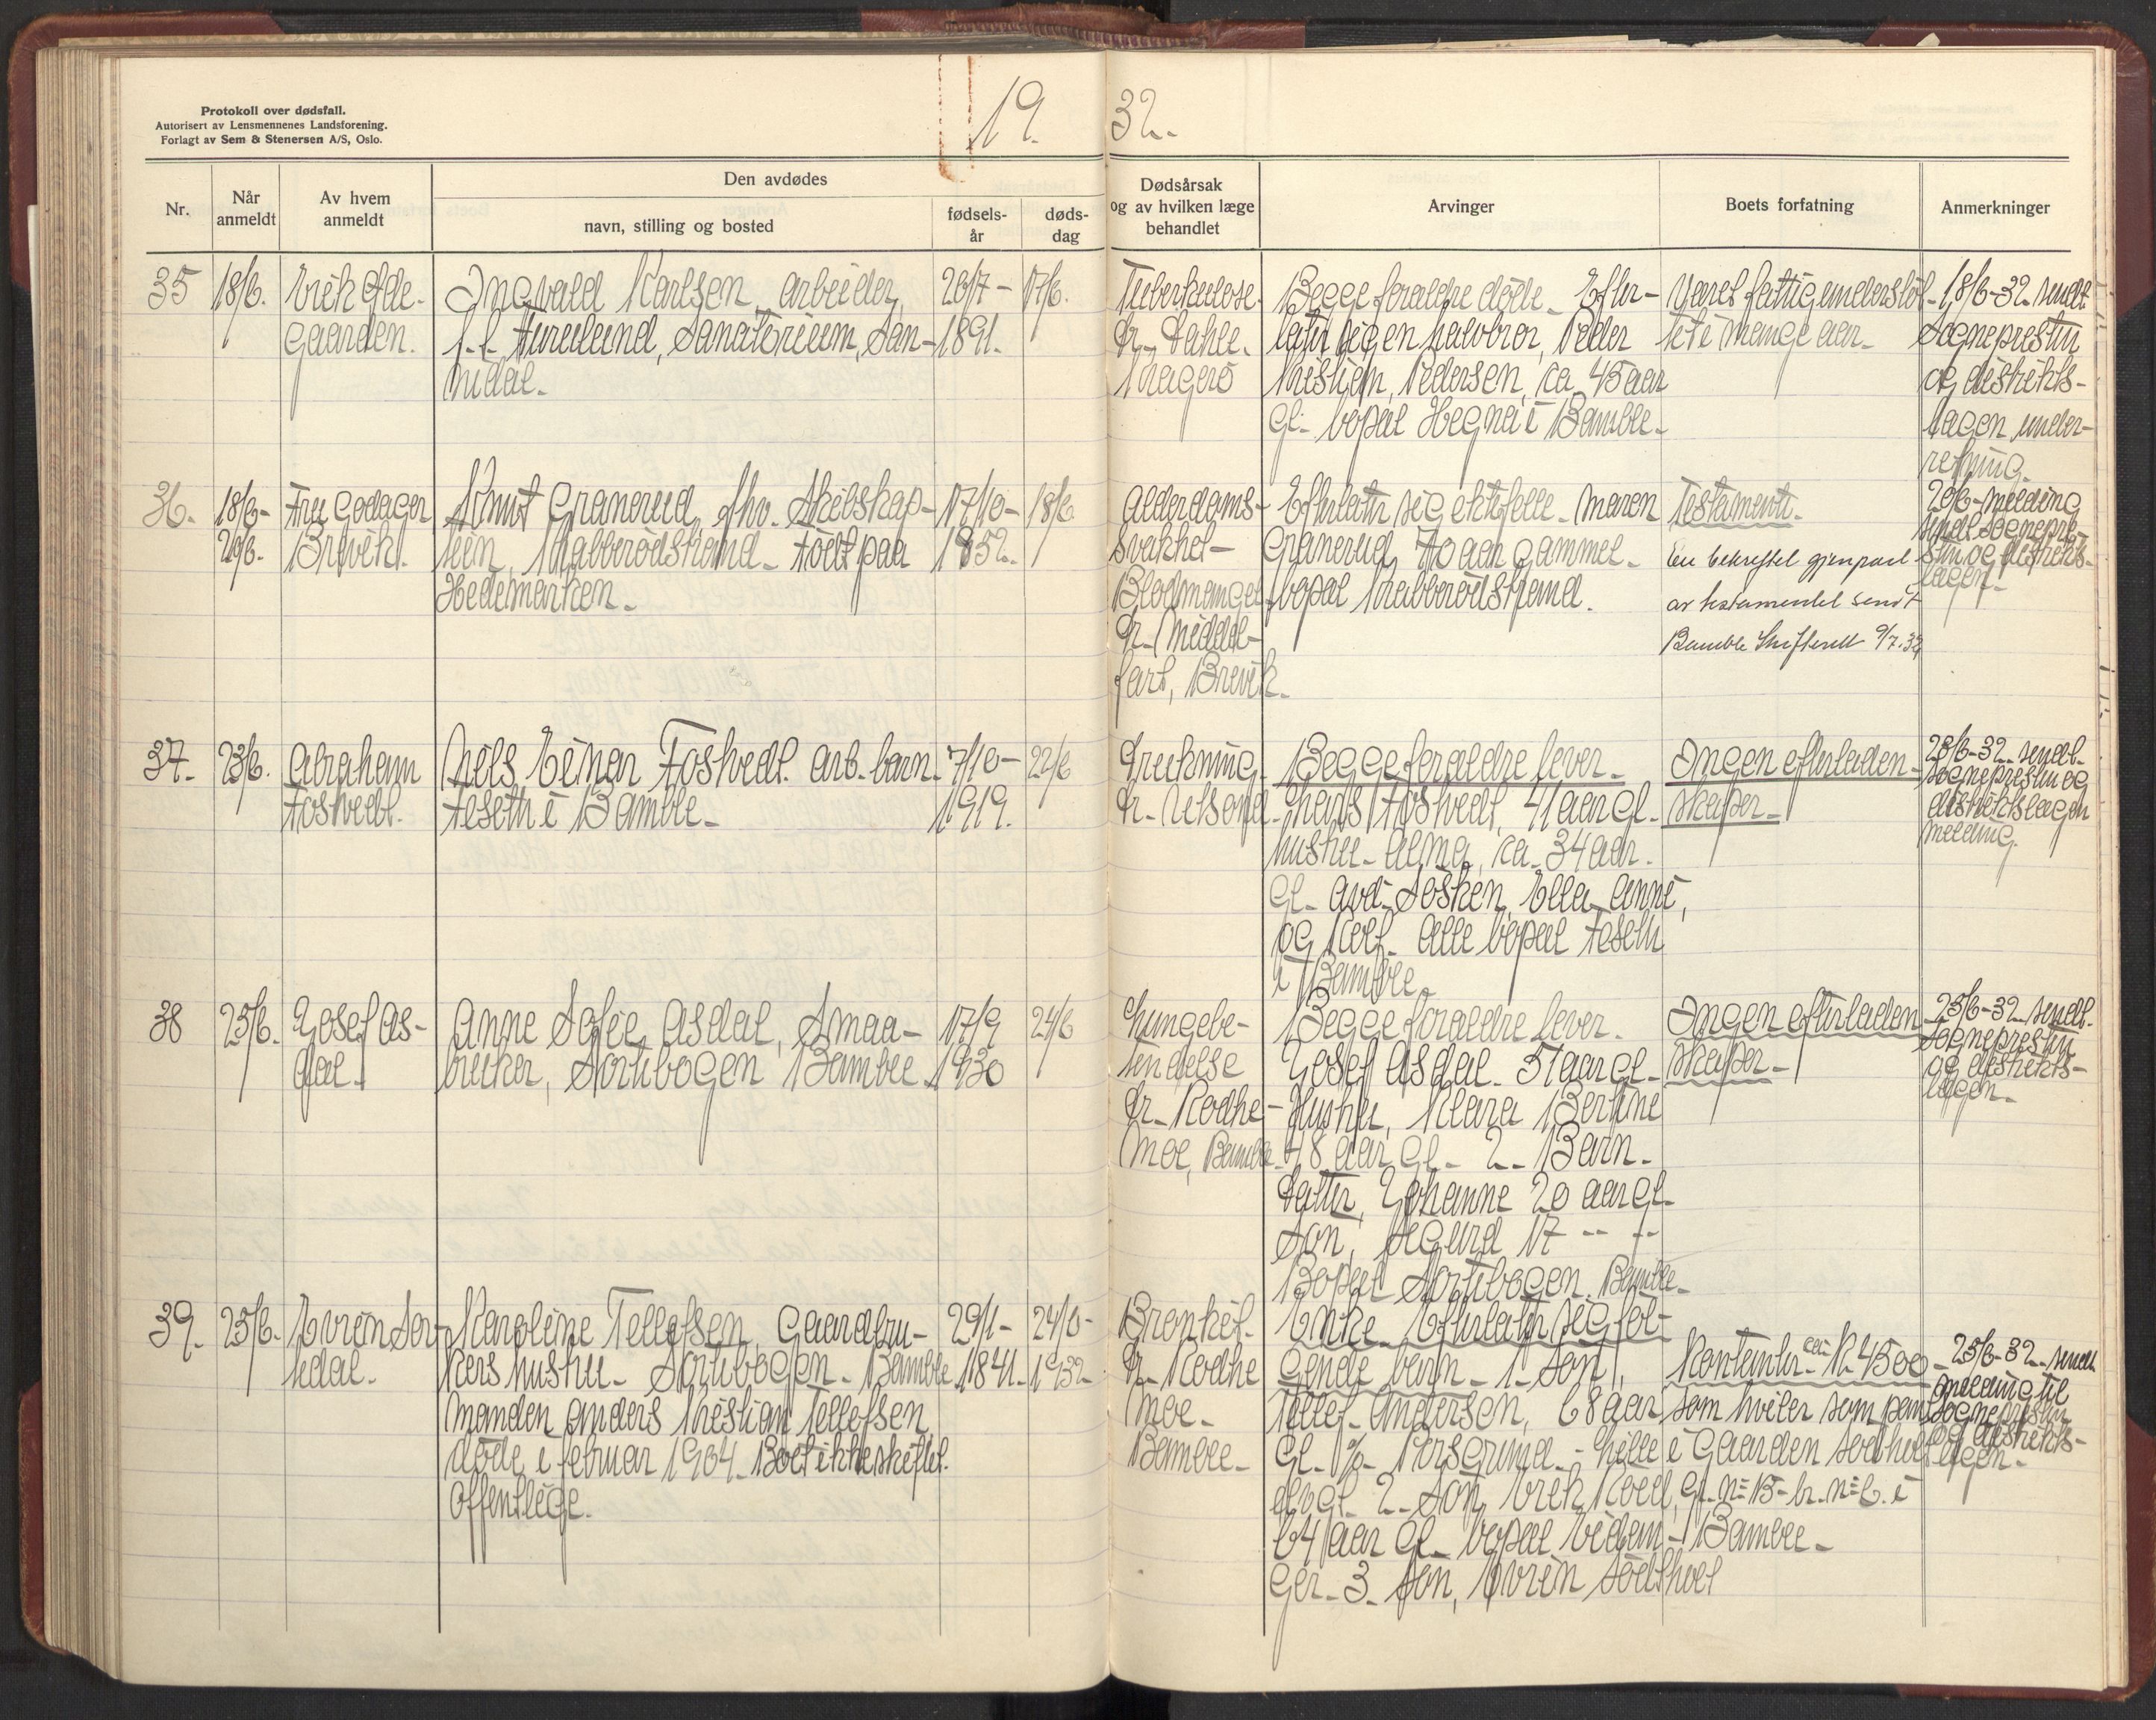 Protokoll over dødsfall.
Autorisert av Lensmennenes Landsforening.
Forlagt av Sem & Stenersen A/S, Oslo.
19 32.
Nr.
Når
anmeldt
Av hvem
anmeldt
Den avdødes
navn, stilling og bosted
fødsels-
år
døds-
dag
Dødsårsak
og av hvilken læge
behandlet
Arvinger
Boets forfatning
Anmerkninger
35
18/6.
Erik Øde-
gaarden.
Ingvald Karlsen, arbeider,
f.t. Furulund, Sanatorium, San-
nidal.
20/7-
1891.
17/6.
Tuberkulose.
Dr. Dahle.
Kragerö
Begge foraldre döde. Efter-
later sig en halvbror, Peder
Kristian Pedersen, ca 45 aar
gl. bopæl Hegna i Bamble.
Været fattigunderstöt-
tet i mange aar.
18/6-32 sendt
Sogneprester
og distrikts-
lægen under-
retning.
36.
18/6-
20/6.
Fru Godager
Brevik.
Knut Granerud, fhv. Skibskap-
tein, Krabberödstrand. Född paa
Hedemarken.
17/10-
1852.
18/6.
Alderdoms-
svakhet-
Blodmangel
Dr. Middel-
fart, Brevik.
Efterlater sig ektefelle. Maren
Granerud, 70 aar gammel.
bopæl Krabberödstrand.
Testamente.
En bekreftet gjenpart
av testamentet sendt
Bamble Skifterett 9/7.32
20/6-melding
sendt sognepre-
sten og distrikts-
lægen.
37.
23/6.
Abraham
Fostvedt.
Nils Einar Fostvedt. arb. barn.
Feseth i Bamble.
7/10-
1919.
22/6
Drukning.
Begge foraldre lever.
Fostvedt, 41 aar gl.
hustru. Alma, ca. 34 aar.
gl. avd. Sösken, Ella, Anne,
og Rolf. Alle bopæl Feseth
i Bamble.
Ingen efterladen-
skaper.
23/6-32 sendt.
sogneprestin og
distriktslægen
melding.
38
25/6.
Josef As-
dal.
Anne Sofie Asdal, Smaa-
bruker, Nordbogen Bamble.
17/9
1930
24/6
Lungebe-
tendelse
Dr. Rodhe-
Moe, Bamble.
Begge foraldre lever.
Josef Asdal. 51 aar gl.
Hustru, Klara Bertine
48 aar gl. 2. Barn.
Datter, Johanne 20 aar gl.
Sön, Sigurd 17 -- --
Bopæl Bamble.
Ingen efterladen
skaper.
25/6-32 sendt.
Sognepresten
og distrikts-
lægen.
39.
25/6.
Karoline Tellefsen, Gaardbru-
kers hustru. Bamble
Manden Anders Kristian Tellefsen
döde i februar 1904. Boet ikke skiftet.
Offentlige.
29/1-
1841.
24/6-
1932.
Bronkit.
Dr. Rodhe
Moe.
Bamble.
Enke. Efterlater sig föl-
gende barn. 1. Sön,
Tellef Andersen, 68 aar
gl. Porsgrund.
2. Sön, Erik
64 aar gl. bopæl
3. Sön,
Kontanter ca. Kr. 4500
som hviler som pant
i Gaarden
gl. n= 13- br. n= 6. i
Bamble.
25/6-32. sendt
melding til
sogneprestin
og distrikts-
lægen.